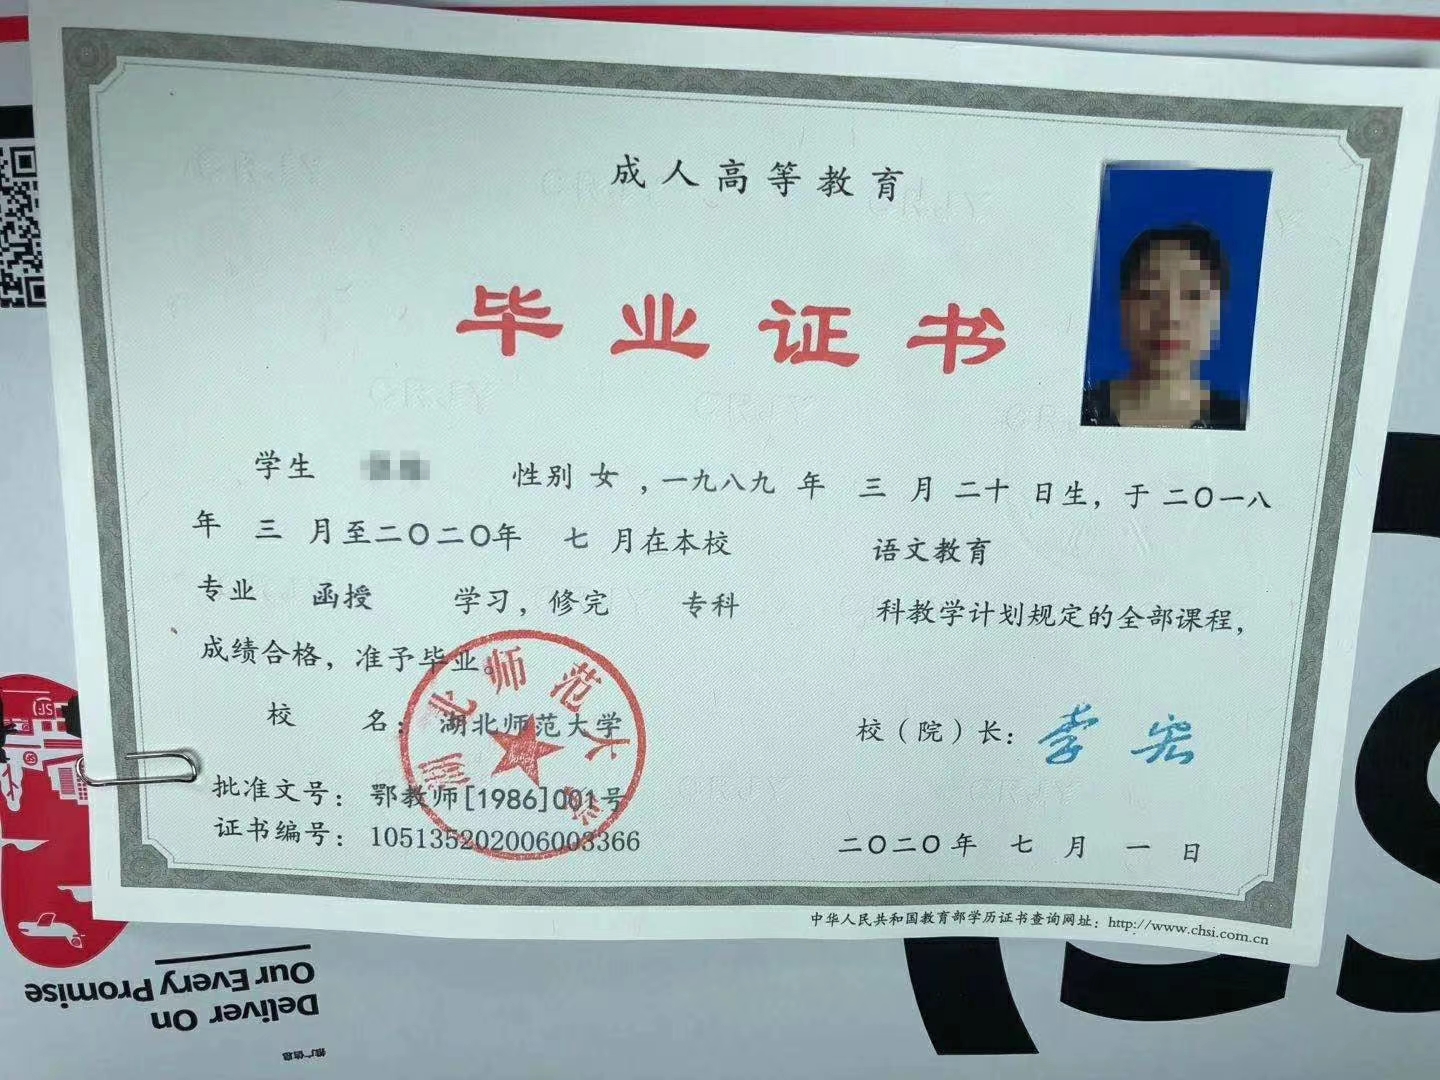 成人高等教育
毕业证书
学生 性别 女 ,一九八九 年 三 月 二十 日生, 于 二〇一八
年 三 月至二〇二〇年 七 月在本校 语文教育
专业 函授 学习, 修完 专科 科教学计划规定的全部课程,
成绩合格, 准予毕业。
校 名: 湖北师范大学
校（院）长: 李宏
批准文号: 鄂教师[1986]001号
证书编号: 105135202006003366
二〇二〇年 七 月 一 日
湖北师范大学
中华人民共和国教育部学历证书查询网址: http://www.chsi.com.cn
Deliver On
Our Every Promise
推广信息
SF